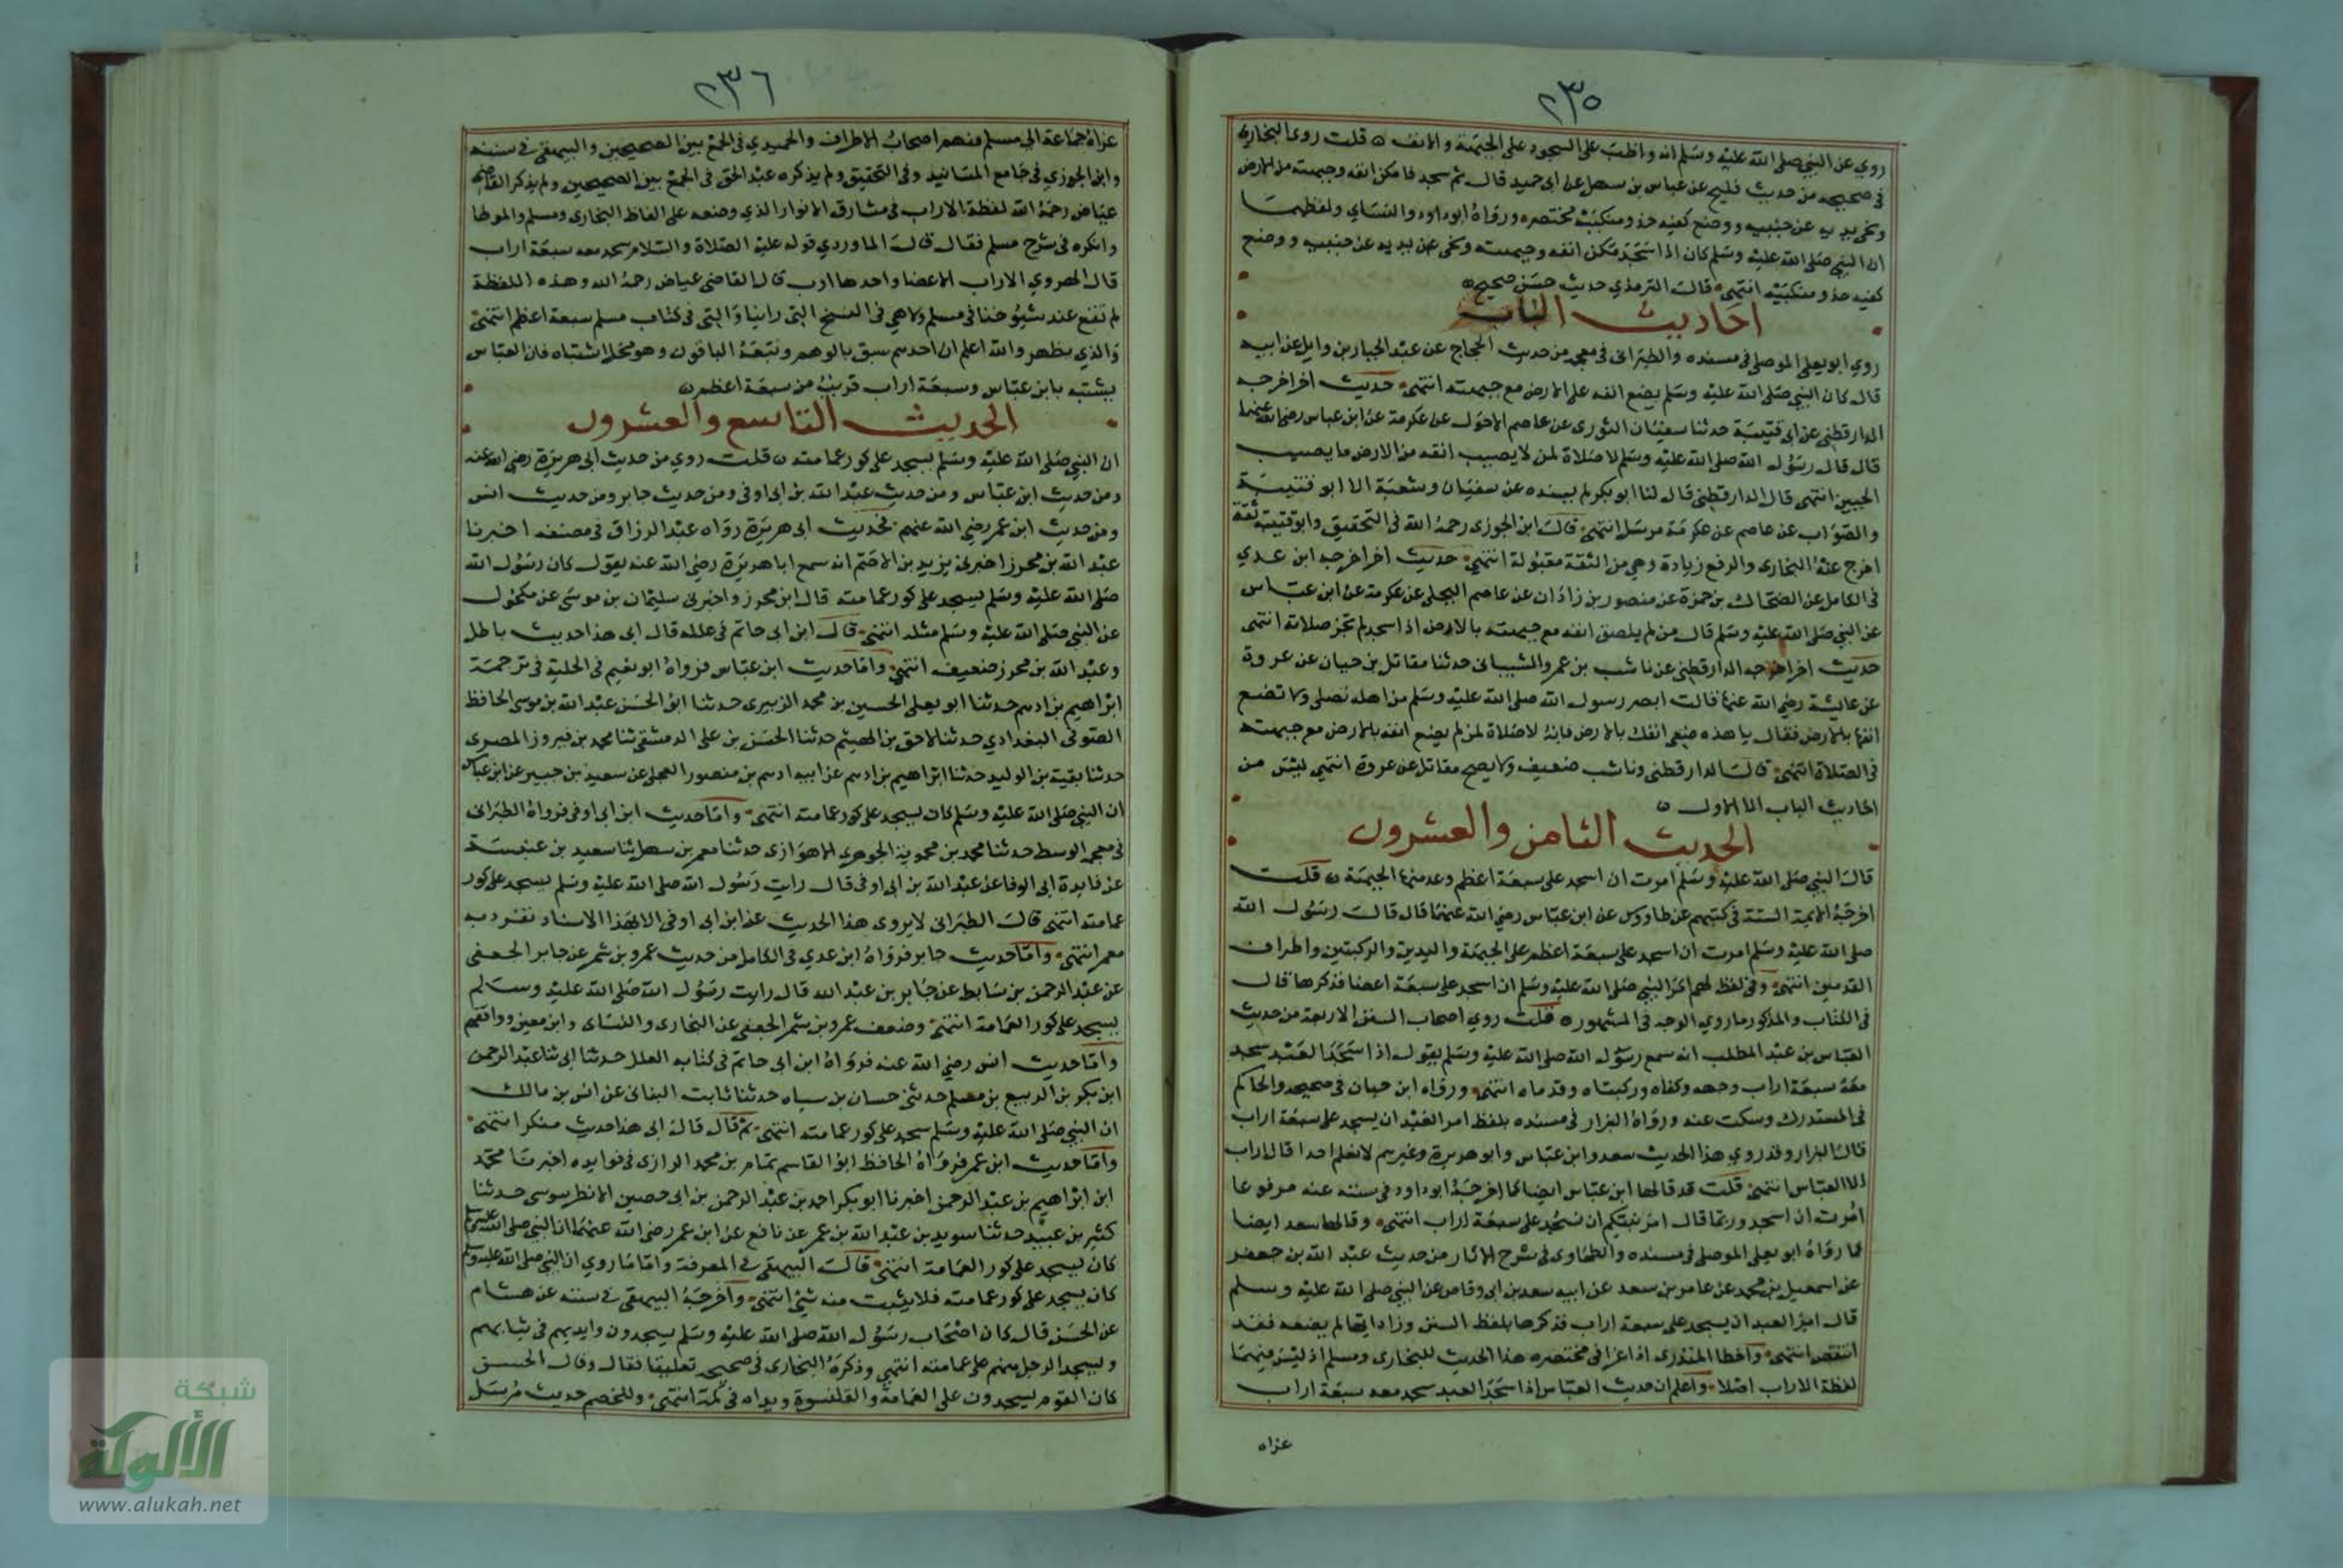 ٢٣٥
روي عن النبي صلى الله عليه وسلم انه واظب على السجود على الجبهة والانف ٥ قلت روى البخاري
في صحيحه من حديث فليح عن عباس بن سهل عن ابى حميد قال ثم سجد فامكن انفه وجبهته من الارض
ونحى يديه عن جنبيه ووضع كفيه حذو منكبيه مختصر ورواه ابو داود والنساي ولفظهما
ان النبي صلى الله عليه وسلم كان اذا سجد مكن انفه وجبهته ونحى عن يديه عن جنبيه ووضع
كفيه حذو منكبيه انتهى قال الترمذي حديث حسن صحيح ٥
احاديث الباب
روي ابو يعلى الموصلي في مسنده والطبراني في معجمه من حديث الحجاج عن عبد الجبار بن وايل عن ابيه
قال كان النبي صلى الله عليه وسلم يضع انفه على الارض مع جبهته انتهى حديث اخر اخرجه
الدارقطني عن ابي قتيبة حدثنا سفيان الثوري عن عاصم الاحول عن عكرمة عن ابن عباس رضي الله عنهما
قال قال رسول الله صلى الله عليه وسلم لا صلاة لمن لا يصيب انفه من الارض ما يصيب
الجبين انتهى قال الدارقطني قال لنا ابو بكر لم يسنده عن سفيان وشعبة الا ابو قتيبة
والصواب عن عاصم عن عكرمة مرسل انتهى قال ابن الجوزي رحمه الله في التحقيق وابو قتيبة ثقة
اخرج عنه البخاري والرفع زيادة وهي من الثقة مقبولة انتهى حديث اخر اخرجه ابن عدي
في الكامل عن الضحاك بن حمزة عن منصور بن زاذان عن عاصم البجلي عن عكرمة عن ابن عباس
عن النبي صلى الله عليه وسلم قال من لم يلصق انفه مع جبهته بالارض اذا سجد لم تجز صلاته انتهى
حديث اخر اخرجه الدارقطني عن ناشب بن عمرو الشيباني حدثنا مقاتل بن حيان عن عروة
عن عايشة رضي الله عنها قالت ابصر رسول الله صلى الله عليه وسلم من اهله تصلي ولا تضع
انفها بالارض فقال يا هذه ضعي انفك بالارض فانه لا صلاة لمن لم يضع انفه بالارض مع جبهته
في الصلاة انتهى قال الدارقطني وناشب ضعيف ولا يصح مقاتل عن عروة انتهى ليس من
احاديث الباب الا الاول ٥
الحديث الثامن والعشرون
قال النبي صلى الله عليه وسلم امرت ان اسجد على سبعة اعظم وعد منها الجبهة ٥ قلت
اخرجه الايمة الستة في كتبهم عن طاووس عن ابن عباس رضي الله عنهما قال قال رسول الله
صلى الله عليه وسلم امرت ان اسجد على سبعة اعظم على الجبهة واليدين والركبتين واطراف
القدمين انتهى وفي لفظ لهم امر النبي صلى الله عليه وسلم ان اسجد على سبعة اعضا فذكرها قال
في الكتاب والمذكور ما روي الوجه في المشهور ٥ قلت روي اصحاب السنن الاربعة من حديث
العباس بن عبد المطلب انه سمع رسول الله صلى الله عليه وسلم يقول اذا سجد العبد سجد
معه سبعة اراب وجهه وكفاه وركبتاه وقدماه انتهى ورواه ابن حبان في صحيحه والحاكم
في المستدرك وسكت عنه ورواه البزار في مسنده بلفظ امر العبد ان يسجد على سبعة اراب
قال البزار وقد روي هذا الحديث سعد وابن عباس وابو هريرة وغيرهم لا نعلم احدا قال اراب
الا العباس انتهى قلت قد قالها ابن عباس ايضا كما اخرجه ابو داود في سننه عنه مرفوعا
امرت ان اسجد وربما قال امر نبيكم ان يسجد على سبعة اراب انتهى وقالها سعد ايضا
كما رواه ابو يعلى الموصلي في مسنده والطحاوي في شرح الاثار من حديث عبد الله بن جعفر
عن اسمعيل بن محمد عن عامر بن سعد عن ابيه سعد بن ابي وقاص عن النبي صلى الله عليه وسلم
قال امر العبد ان يسجد على سبعة اراب فذكرها بلفظ السنن وزاد ايها لم يضعه فقد
انتقص انتهى واخطا المنذري اذ اعزا في مختصره هذا الحديث للبخاري ومسلم اذ ليس فيهما
لفظة الاراب اصلا واعلم ان حديث العباس اذا سجد العبد سجد معه سبعة اراب
عزاه
٢٣٦
عزاه جماعة الى مسلم منهم اصحاب الاطراف والحميدي في الجمع بين الصحيحين والبيهقي في سننه
وابن الجوزي في جامع المسانيد وفي التحقيق ولم يذكره عبد الحق في الجمع بين الصحيحين ولم يذكر القاضي
عياض رحمه الله لفظة الاراب في مشارق الانوار الذي وضعه على الفاظ البخاري ومسلم والموطا
وانكره في شرح مسلم فقال قال الماوردي قوله عليه الصلاة والسلام سجد معه سبعة اراب
قال الهروي الاراب الاعضا واحدها ارب قال القاضي عياض رحمه الله وهذه اللفظة
لم تقع عند شيوخنا في مسلم ولا هي في النسخ التي راينا والتي في كتاب مسلم سبعة اعظم انتهى
والذي يظهر والله اعلم ان احدهم سبق بالوهم وتبعه الباقون وهو محل اشتباه فان العباس
يشتبه بابن عباس وسبعة اراب قريب من سبعة اعظم ٥
الحديث التاسع والعشرون
ان النبي صلى الله عليه وسلم يسجد على كور عمامته ٥ قلت روي من حديث ابي هريرة رضي الله عنه
ومن حديث ابن عباس ومن حديث عبد الله بن ابي اوفى ومن حديث جابر ومن حديث انس
ومن حديث ابن عمر رضي الله عنهم فحديث ابي هريرة رواه عبد الرزاق في مصنفه اخبرنا
عبد الله بن محرز اخبرني يزيد بن الاصم انه سمع ابا هريرة رضي الله عنه يقول كان رسول الله
صلى الله عليه وسلم يسجد على كور عمامته قال ابن محرز واخبرني سليمان بن موسى عن مكحول
عن النبي صلى الله عليه وسلم مثله انتهى قال ابن ابي حاتم في علله قال ابى هذا حديث باطل
وعبد الله بن محرز ضعيف انتهى واما حديث ابن عباس فرواه ابو نعيم في الحلية في ترجمة
ابراهيم بن ادهم حدثنا ابو يعلى الحسين بن محمد الزبيري حدثنا ابو الحسن عبد الله بن موسى الحافظ
الصوفي البغدادي حدثنا لاحق بن الهيثم حدثنا الحسن بن على الدمشقي ثنا محمد بن فيروز المصري
حدثنا بقية بن الوليد حدثنا ابراهيم بن ادهم عن ابيه ادهم بن منصور العجلي عن سعيد بن جبير عن ابن عباس
ان النبي صلى الله عليه وسلم كان يسجد على كور عمامته انتهى واما حديث ابن ابي اوفى فرواه الطبراني
في معجمه الوسط حدثنا محمد بن محموية الجوهري الاهوازي حدثنا معمر بن سهل ثنا سعيد بن عنبسة
عن فايدة ابي الوفا عن عبد الله بن ابي اوفى قال رايت رسول الله صلى الله عليه وسلم يسجد على كور
عمامته انتهى قال الطبراني لا يروى هذا الحديث عن ابن ابي اوفى الا بهذا الاسناد تفرد به
معمر انتهى واما حديث جابر فرواه ابن عدي في الكامل من حديث عمرو بن شمر عن جابر الجعفي
عن عبد الرحمن بن سابط عن جابر بن عبد الله قال رايت رسول الله صلى الله عليه وسلم
يسجد على كور العمامة انتهى وضعف عمرو بن شمر الجعفي عن البخاري والنساي وابن معين ووافقهم
واما حديث انس رضي الله عنه فرواه ابن ابي حاتم في كتابه العلل حدثنا ابي ثنا عبد الرحمن
ابن بكر بن الربيع بن مسلم حدثني حسان بن سياه حدثنا ثابت البناني عن انس بن مالك
ان النبي صلى الله عليه وسلم سجد على كور عمامته انتهى ثم قال قال ابى هذا حديث منكر انتهى
واما حديث ابن عمر فرواه الحافظ ابو القاسم تمام بن محمد الرازي في فوايده اخبرنا محمد
ابن ابراهيم بن عبد الرحمن اخبرنا ابو بكر احمد بن عبد الرحمن بن ابى حصين الانطرسوسي حدثنا
كثير بن عبيد حدثنا سويد بن عبد الله بن عمر عن نافع عن ابن عمر رضي الله عنهما ان النبي صلى الله عليه وسلم
كان يسجد على كور العمامة انتهى قال البيهقي في المعرفة واما ما روي ان النبي صلى الله عليه وسلم
كان يسجد على كور عمامته فلا يثبت منه شي انتهى واخرجه البيهقي في سننه عن هشام
عن الحسن قال كان اصحاب رسول الله صلى الله عليه وسلم يسجدون وايديهم في ثيابهم
ويسجد الرجل منهم على عمامته انتهى وذكره البخاري في صحيحه تعليقا فقال وقال الحسن
كان القوم يسجدون على العمامة والقلنسوة ويداه في كمه انتهى وللخصم حديث مرسل
شبكة
الألوكة
www.alukah.net